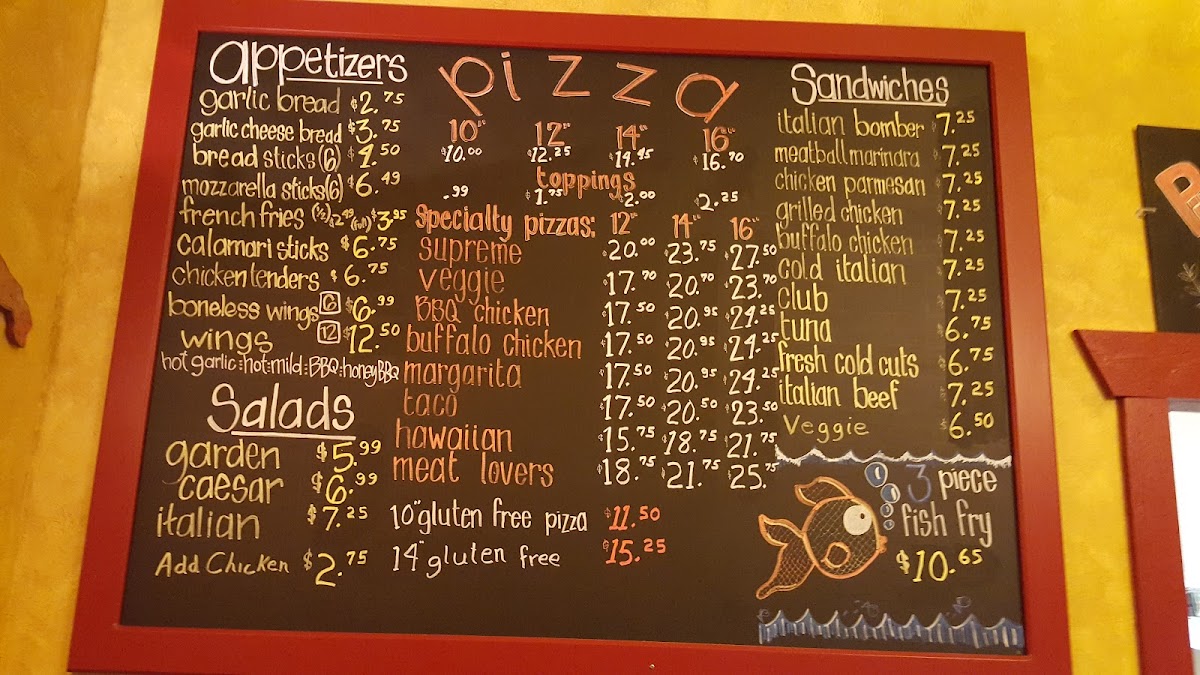 appetizers
garlic bread $2.75
garlic cheese bread $3.75
bread sticks (6) $4.50
mozzarella sticks (6) $6.49
french fries (1/2) $2.49 (full) $3.95
calamari sticks $6.75
chicken tenders $6.75
boneless wings 6 $6.99
wings 12 $12.50
hot garlic:hot:mild:BBQ:honey BBQ
Salads
garden $5.99
caesar $6.99
italian $7.25
Add Chicken $2.75
pizza
10" 12" 14" 16"
$10.00 $12.25 $14.45 $16.70
toppings
.99 $1.75 $2.00 $2.25
Specialty pizzas: 12" 14" 16"
supreme $20.00 $23.75 $27.50
veggie $17.70 $20.70 $23.70
BBQ chicken $17.50 $20.95 $24.25
buffalo chicken $17.50 $20.95 $24.25
margarita $17.50 $20.95 $24.25
taco $17.50 $20.50 $23.50
hawaiian $15.75 $18.75 $21.75
meat lovers $18.75 $21.75 $25.75
10" gluten free pizza $11.50
14" gluten free $15.25
Sandwiches
italian bomber $7.25
meatball marinara $7.25
chicken parmesan $7.25
grilled chicken $7.25
buffalo chicken $7.25
cold italian $7.25
club $7.25
tuna $6.75
fresh cold cuts $6.75
italian beef $7.25
Veggie $6.50
3 piece
fish fry
$10.65